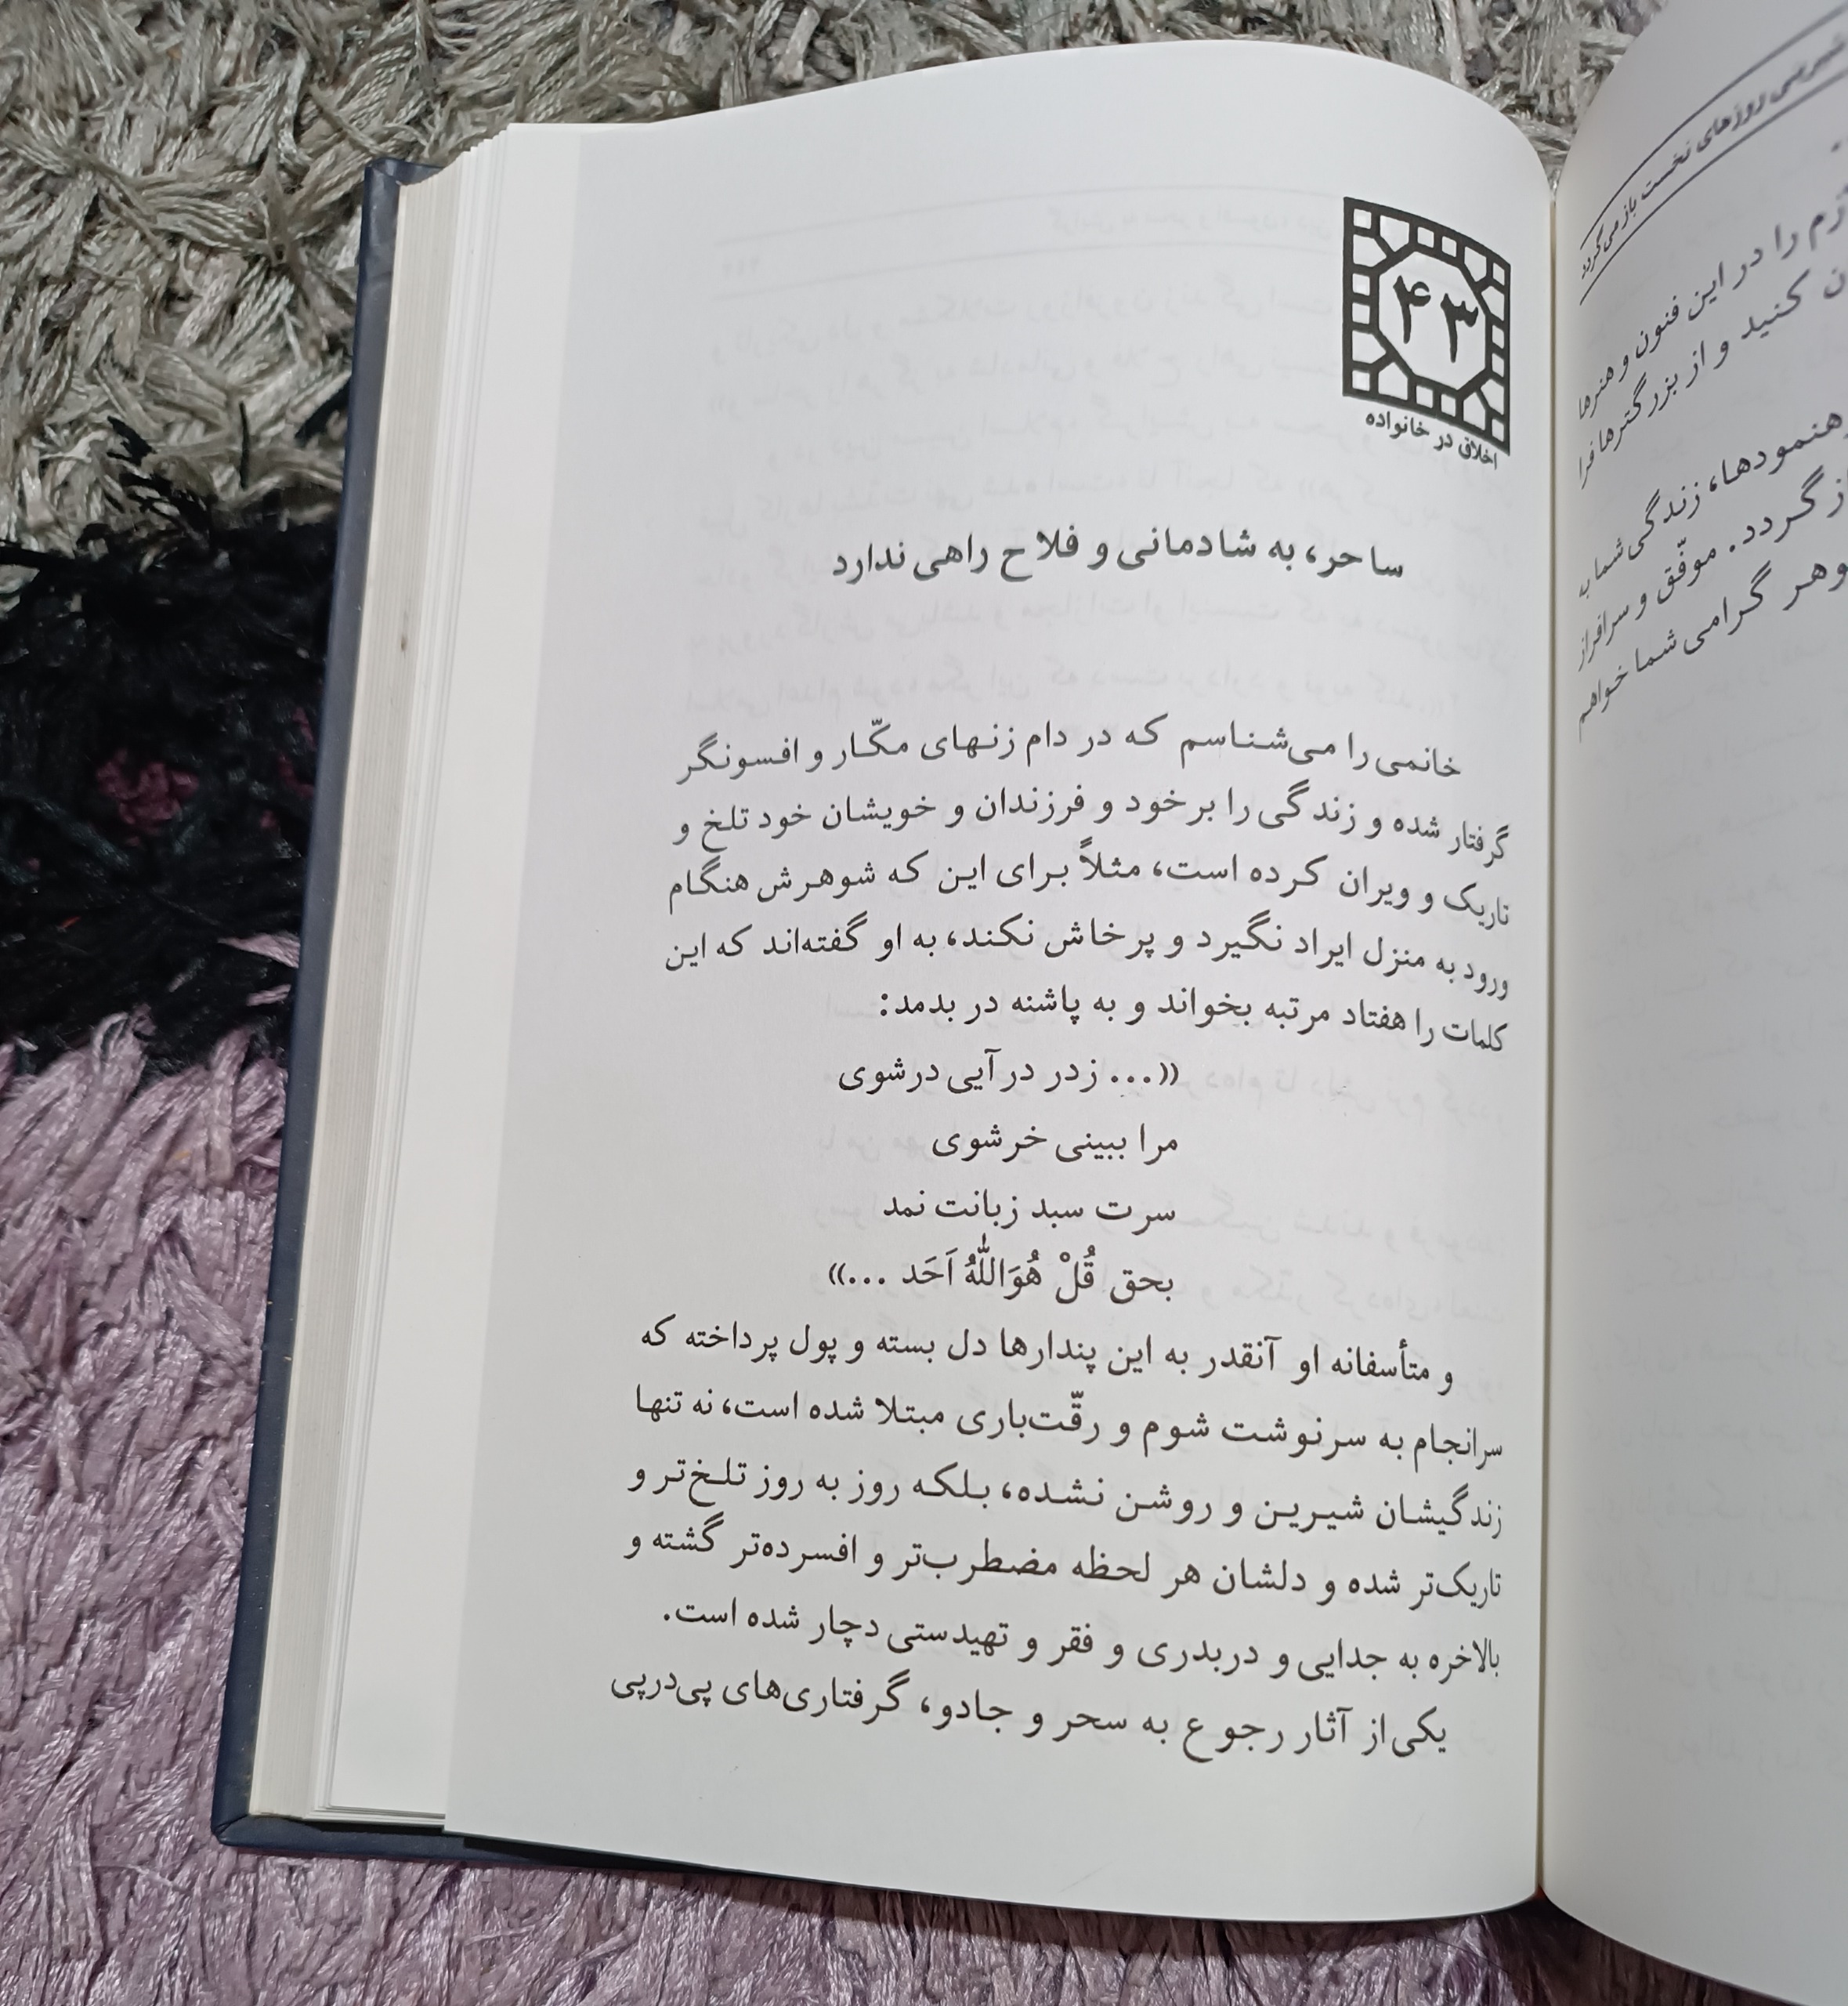 شیرینی روزهای نخست باز می‌گردد
لازم را در این فنون و هنرها
کنید و از بزرگترها فرا
رهنمودها، زندگی شما ب
بازگردد. موفّق و سرافراز
گرامی شما خواهم
۴۳
اخلاق در خانواده
ساحر، به شادمانی و فلاح راهی ندارد
خانمی را می‌شناسم که در دام زنهای مکّار و افسونگر
گرفتار شده و زندگی را بر خود و فرزندان و خویشان خود تلخ و
تاریک و ویران کرده است، مثلاً برای این که شوهرش هنگام
ورود به منزل ایراد نگیرد و پرخاش نکند، به او گفته‌اند که این
کلمات را هفتاد مرتبه بخواند و به پاشنه در بدمد:
«... زدر درآیی درشوی
مرا ببینی خرشوی
سرت سبد زبانت نمد
بحق قُلْ هُوَاللّٰهُ اَحَد ...»
و متأسفانه او آنقدر به این پندارها دل بسته و پول پرداخته که
سرانجام به سرنوشت شوم و رقّت‌باری مبتلا شده است، نه تنها
زندگیشان شیرین و روشن نشده، بلکه روز به روز تلخ‌تر و
تاریک‌تر شده و دلشان هر لحظه مضطرب‌تر و افسرده‌تر گشته و
بالاخره به جدایی و دربدری و فقر و تهیدستی دچار شده است.
یکی از آثار رجوع به سحر و جادو، گرفتاری‌های پی‌درپی